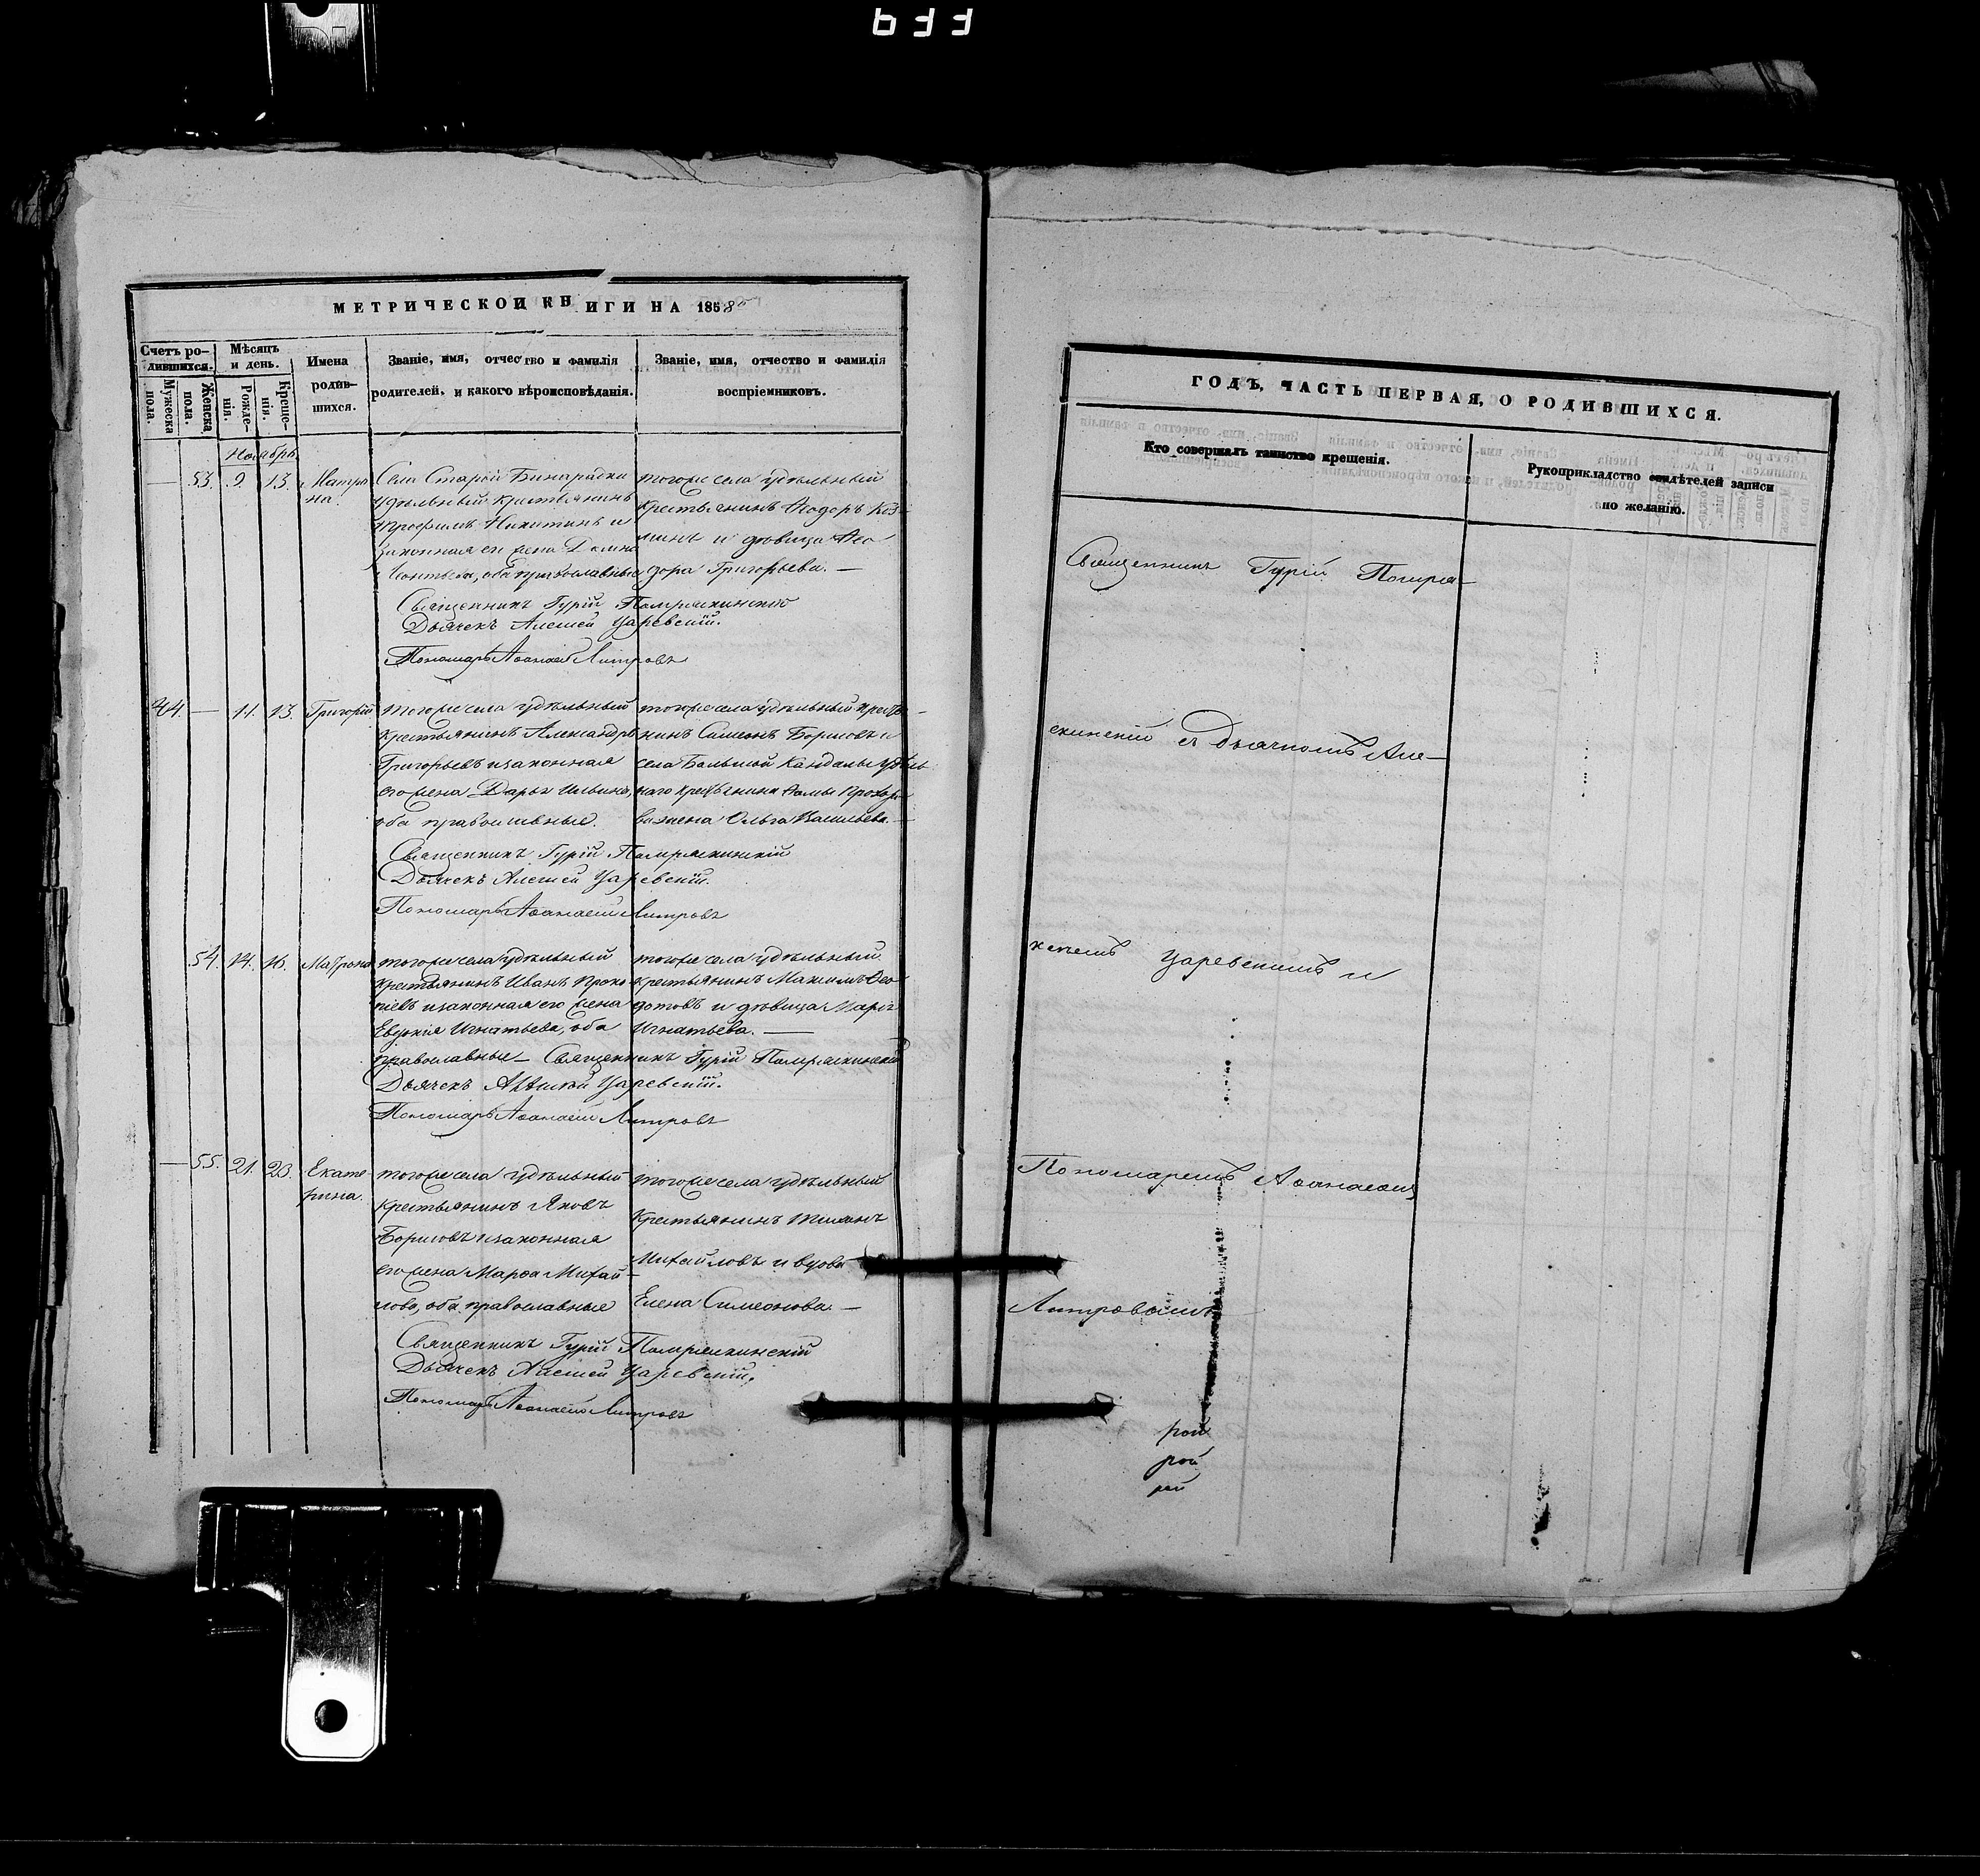 МЕТРИЧЕСКОЙ КНИГИ НА 1858й
Счетъ родившихся.
Мужеска пола.
Женска пола.
Мѣсяцъ и день.
Рожденія.
Крещенія.
Имена родившихся.
Званіе, имя, отчество и фамилія
родителей, и какого вѣроисповѣданія.
Званіе, имя, отчество и фамилія
воспріемниковъ.
Ноябрь
— 53. 9. 13. Матро
на.
Села Старой Бинарадки
удѣльный крестьянинъ
Трофимъ Никитинъ и
законная его жена Домна
Леонтьева, оба православные
тогоже села удѣльный
крестьянинъ Ѳедоръ Коз
минъ и дѣвица Ѳео
дора Григорьева. —
Священникъ Гурій Помряскинскій
Дьячекъ Алексей Царевскій.
Пономарь Аѳанасій Литровъ
44. — 11. 13. Григорій
тогоже села удѣльный
крестьянинъ Александръ
Григорьевъ и законная
его жена Дарья Ильина,
оба православные.
тогоже села удѣльный крестья-
нинъ Симеонъ Борисовъ и
села Большой Кандалы удѣль
наго крестьянина Ѳомы Прохоро
ва жена Ольга Васильева. —
Священникъ Гурій Помряскинскій
Дьячекъ Алексей Царевскій.
Пономарь Аѳанасій Литровъ
54. 14. 16. Матрона
тогоже села удѣльный
крестьянинъ Иванъ Проко
пьевъ и законная его жена
Евдокія Игнатьева, оба
православные —
тогоже села удѣльный
крестьянинъ Максимъ Ѳео
дотовъ и дѣвица Марія
Игнатьева. —
Священникъ Гурій Помряскинскій
Дьячекъ Алексей Царевскій.
Пономарь Аѳанасій Литровъ
— 55. 21. 23. Екате-
рина.
тогоже села удѣльный
крестьянинъ Яковъ
Борисовъ и законная
его жена Марѳа Михай-
лова, оба православные
тогоже села удѣльный
крестьянинъ
Михайловъ и вдова
Елена Симеонова. —
Священникъ Гурій Помряскинскій
Дьячекъ Алексей Царевскій.
Пономарь Аѳанасій Литровъ
ГОДЪ, ЧАСТЬ ПЕРВАЯ, О РОДИВШИХСЯ.
Кто совершалъ таинство крещенія.
Рукоприкладство свидѣтелей записи
по желанію.
Священникъ Гурій Помря-
скинскій съ Дьячкомъ Але-
ксеемъ Царевскимъ и
Пономаремъ Аѳанасіемъ
Литровымъ
рой
рой
рей